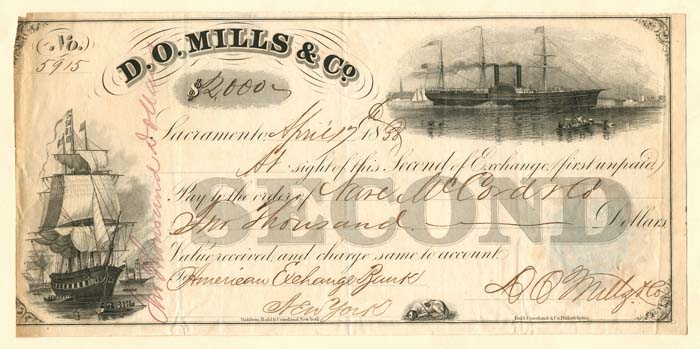 No.
5915
D. O. MILLS & Co.
$2,000
Two Thousand Dollars
Sacramento, April 17 1858
At sight of this Second of Exchange (first unpaid)
Pay to the order of Nave McCord & Co
Two thousand Dollars
SECOND
Value received, and charge same to account
To American Exchange Bank
New York
D O Mills & Co
Baldwin, Bald & Cousland, New York. Bald, Cousland & Co. Philadelphia.